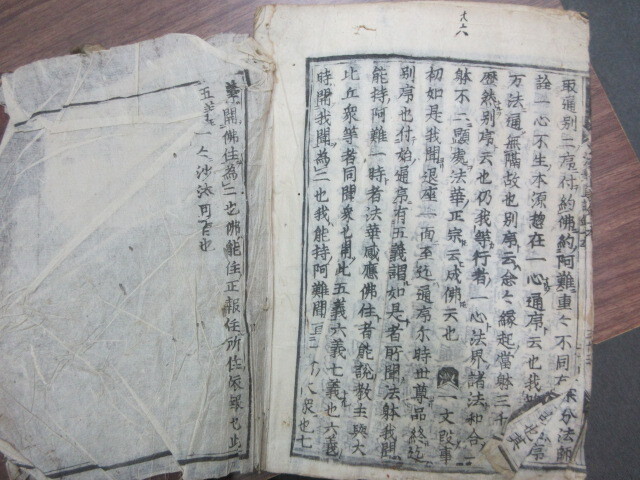 十六
取通別二序付約佛約阿難重〻不同
詮一心不生本源並在一心通序云也
万法通無隔故也別序云介〻縁起當躰三千
歴然別序云也仍我等行者一心法界諸法和合
躰不二顕處法華正宗云成佛云也 一文段事
初如是我聞退座一面至迄通序尓時世尊品終迄
別序也付始通序有五義謂如是者所聞法躰我聞
能持阿難一時者法華感應佛住者能說教主與大
比丘衆等者同聞衆也開此五義六義七義也六義
時開我聞為二也我能持阿難聞 也七
開佛住為二也佛能住正報住所住依報也此
五義一〻沙汰可有也